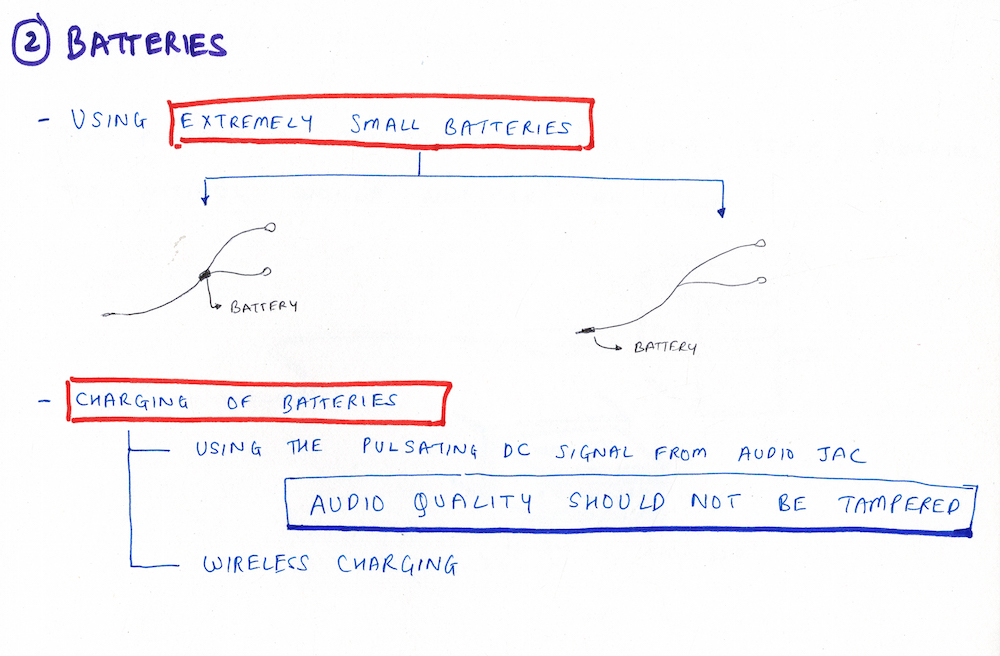 2 BATTERIES
- USING EXTREMELY SMALL BATTERIES
BATTERY
BATTERY
- CHARGING OF BATTERIES
USING THE PULSATING DC SIGNAL FROM AUDIO JAC
AUDIO QUALITY SHOULD NOT BE TAMPERED
WIRELESS CHARGING